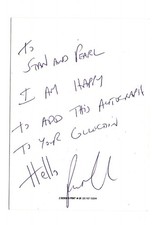 To
Stan and Pearl
I am happy
to add this autograph
to your collection
Hello